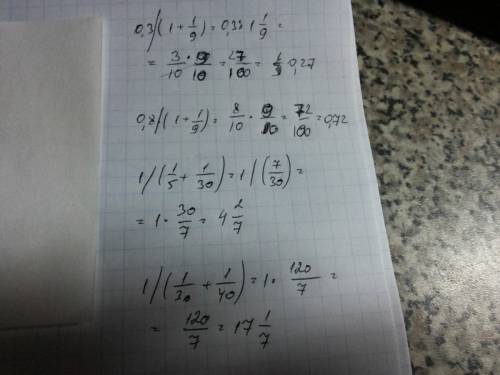 0,3/(1+1/9)=0,3: 1 1/9=
= 3/10 · 9/10 = 27/100 = 0,27
0,8/(1+1/9)= 8/10 · 9/10 = 72/100 = 0,72
1/(1/5+1/30)=1/(7/30)=
= 1 · 30/7 = 4 2/7
1/(1/30+1/40)=1 · 120/7 =
= 120/7 = 17 1/7